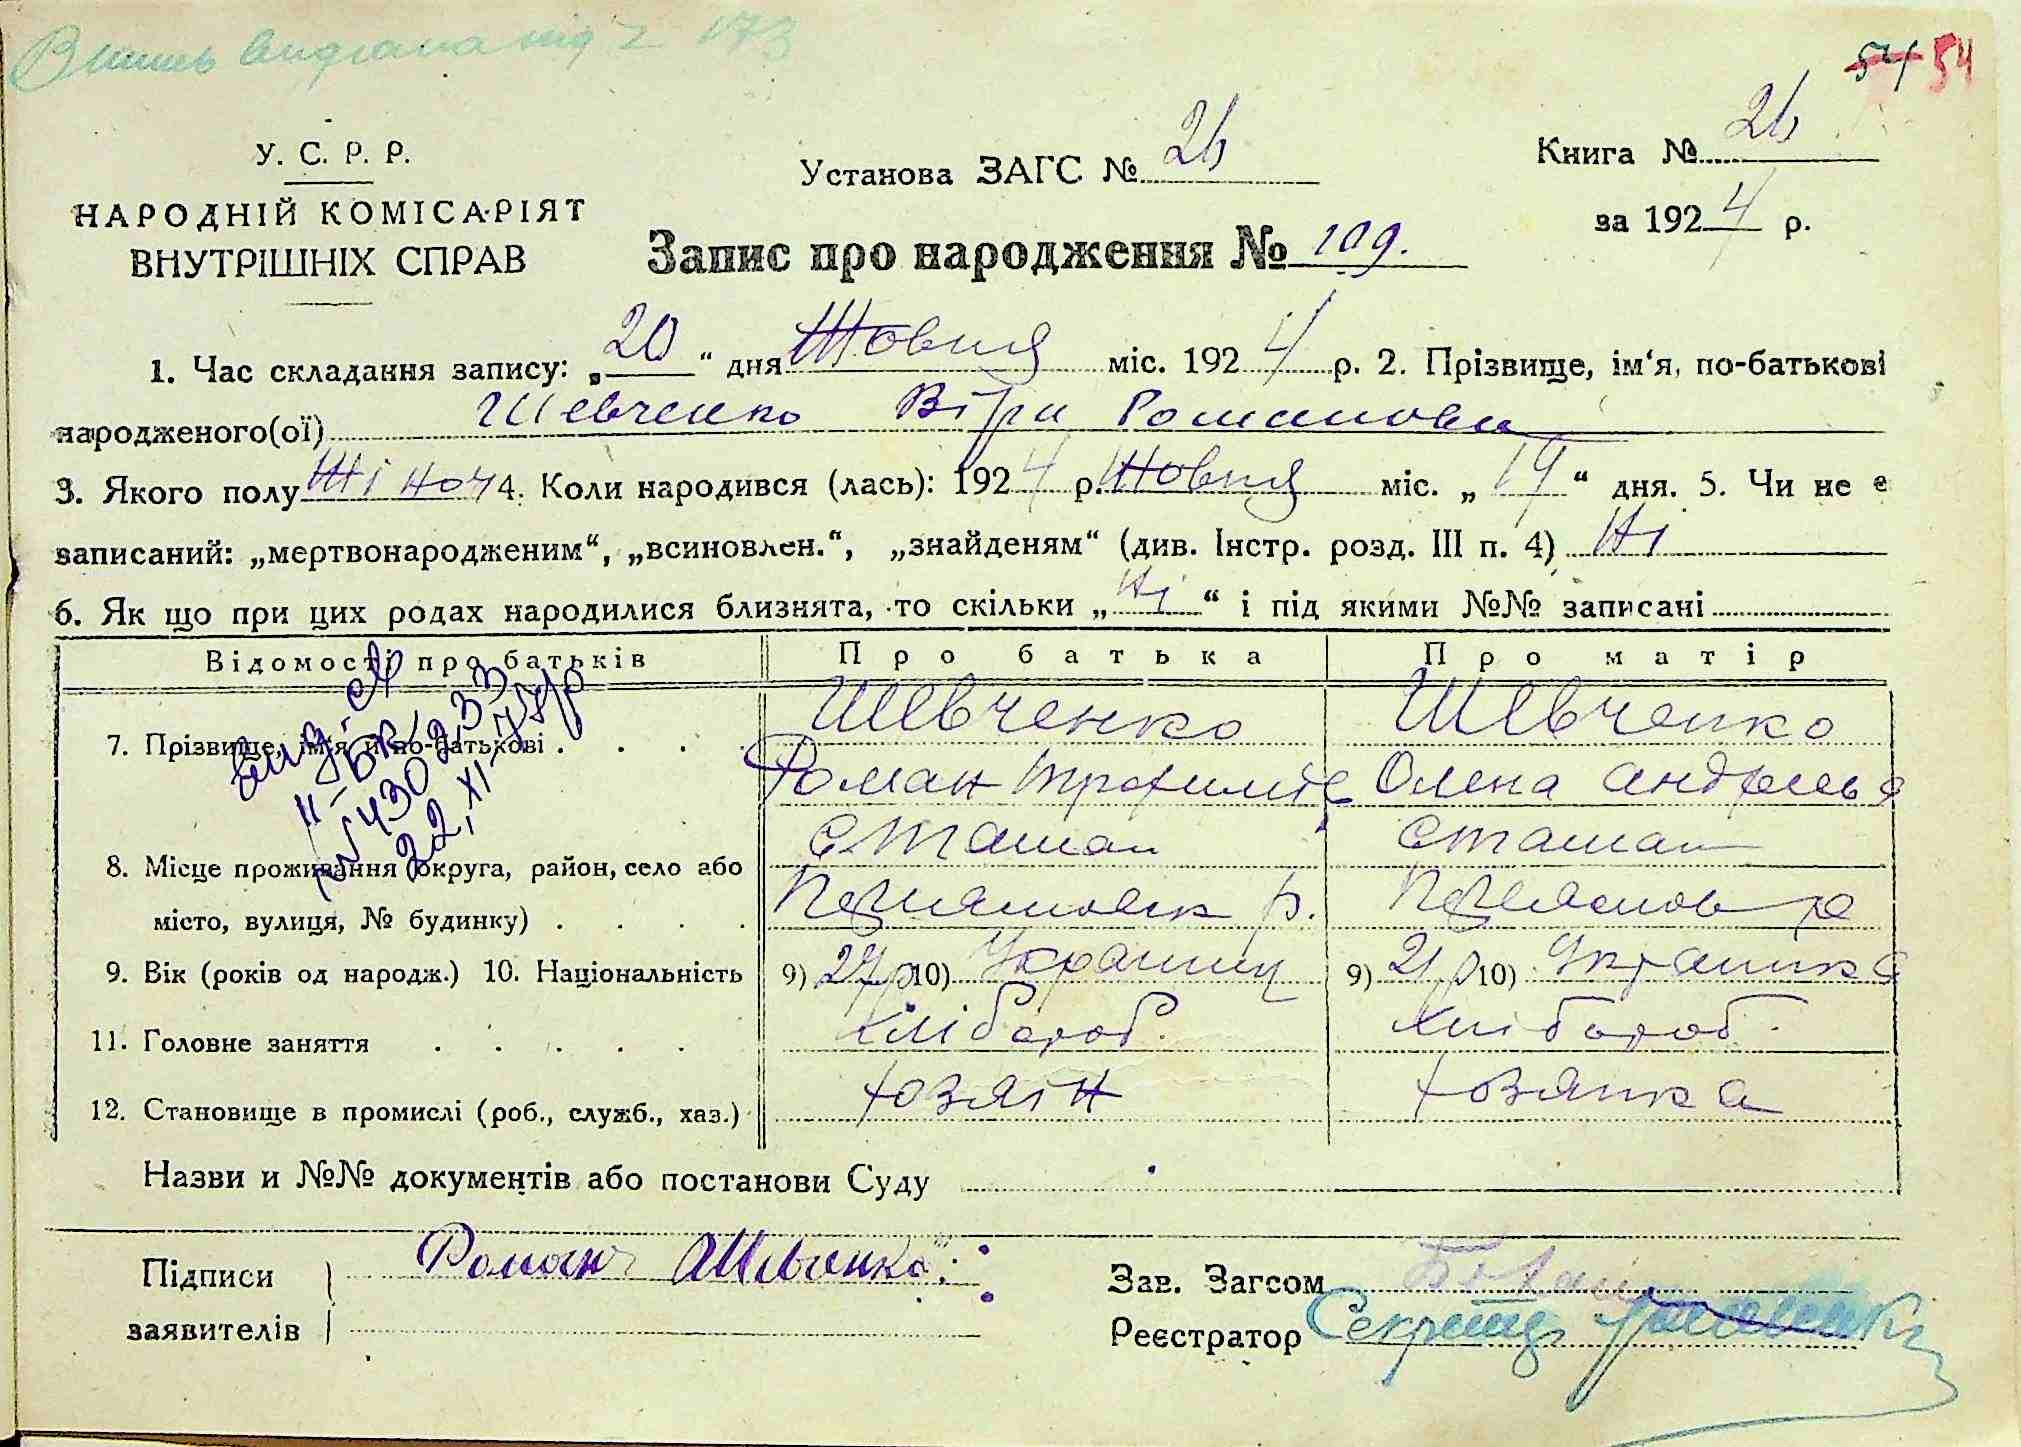 54 54
У. С. Р. Р.
НАРОДНІЙ КОМІСАРІЯТ
ВНУТРІШНІХ СПРАВ
Установа ЗАГС №
Книга №
за 1924 р.
Запис про народження № 109.
1. Час складання запису: „20“ дня Жовтня міс. 1924 р. 2. Прізвище, ім‘я, по-батькові
народженого(ої) Шевченко Віра Романовна
3. Якого полу Жіноч 4. Коли народився (лась): 1924 р. Жовтня міс. „19“ дня. 5. Чи не є
записаний: „мертвонародженим“, „всиновлен.“, „знайденям“ (див. Інстр. розд. III п. 4) Ні
6. Як що при цих родах народилися близнята, то скільки „Ні“ і під якими №№ записані
Відомості про батьків Про батька Про матір
7. Прізвище, ім‘я й по-батькові Шевченко Шевченко
Роман Олена
8. Місце проживання округа, район, село або
місто, вулиця, № будинку) р.
9. Вік (років од народж.) 10. Національність 9) 27 р 10) Украинец 9) 21 р 10) Украинка
11. Головне заняття хлібороб. хлібороб.
12. Становище в промислі (роб., служб., хаз.) хозяін хозяйка
Назви и №№ документів або постанови Суду
Підписи Роман Шевченко
заявителів
Зав. Загсом
Реєстратор Секретар